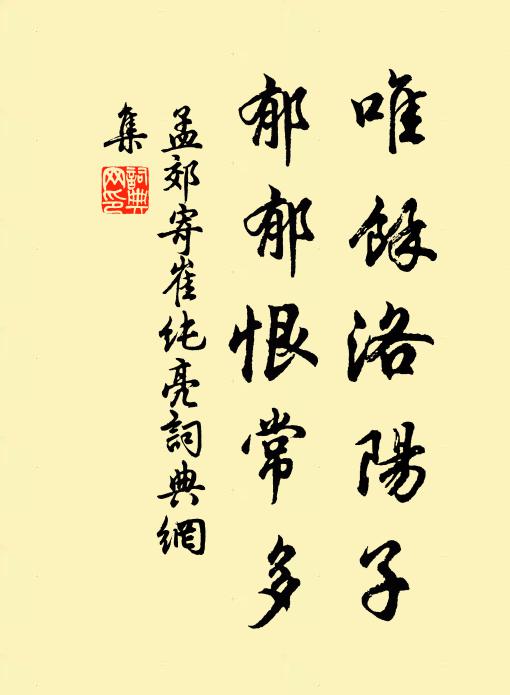 唯餘洛陽子
郁郁恨常多
孟郊寄崔純亮詞典網
集
詞典
网印